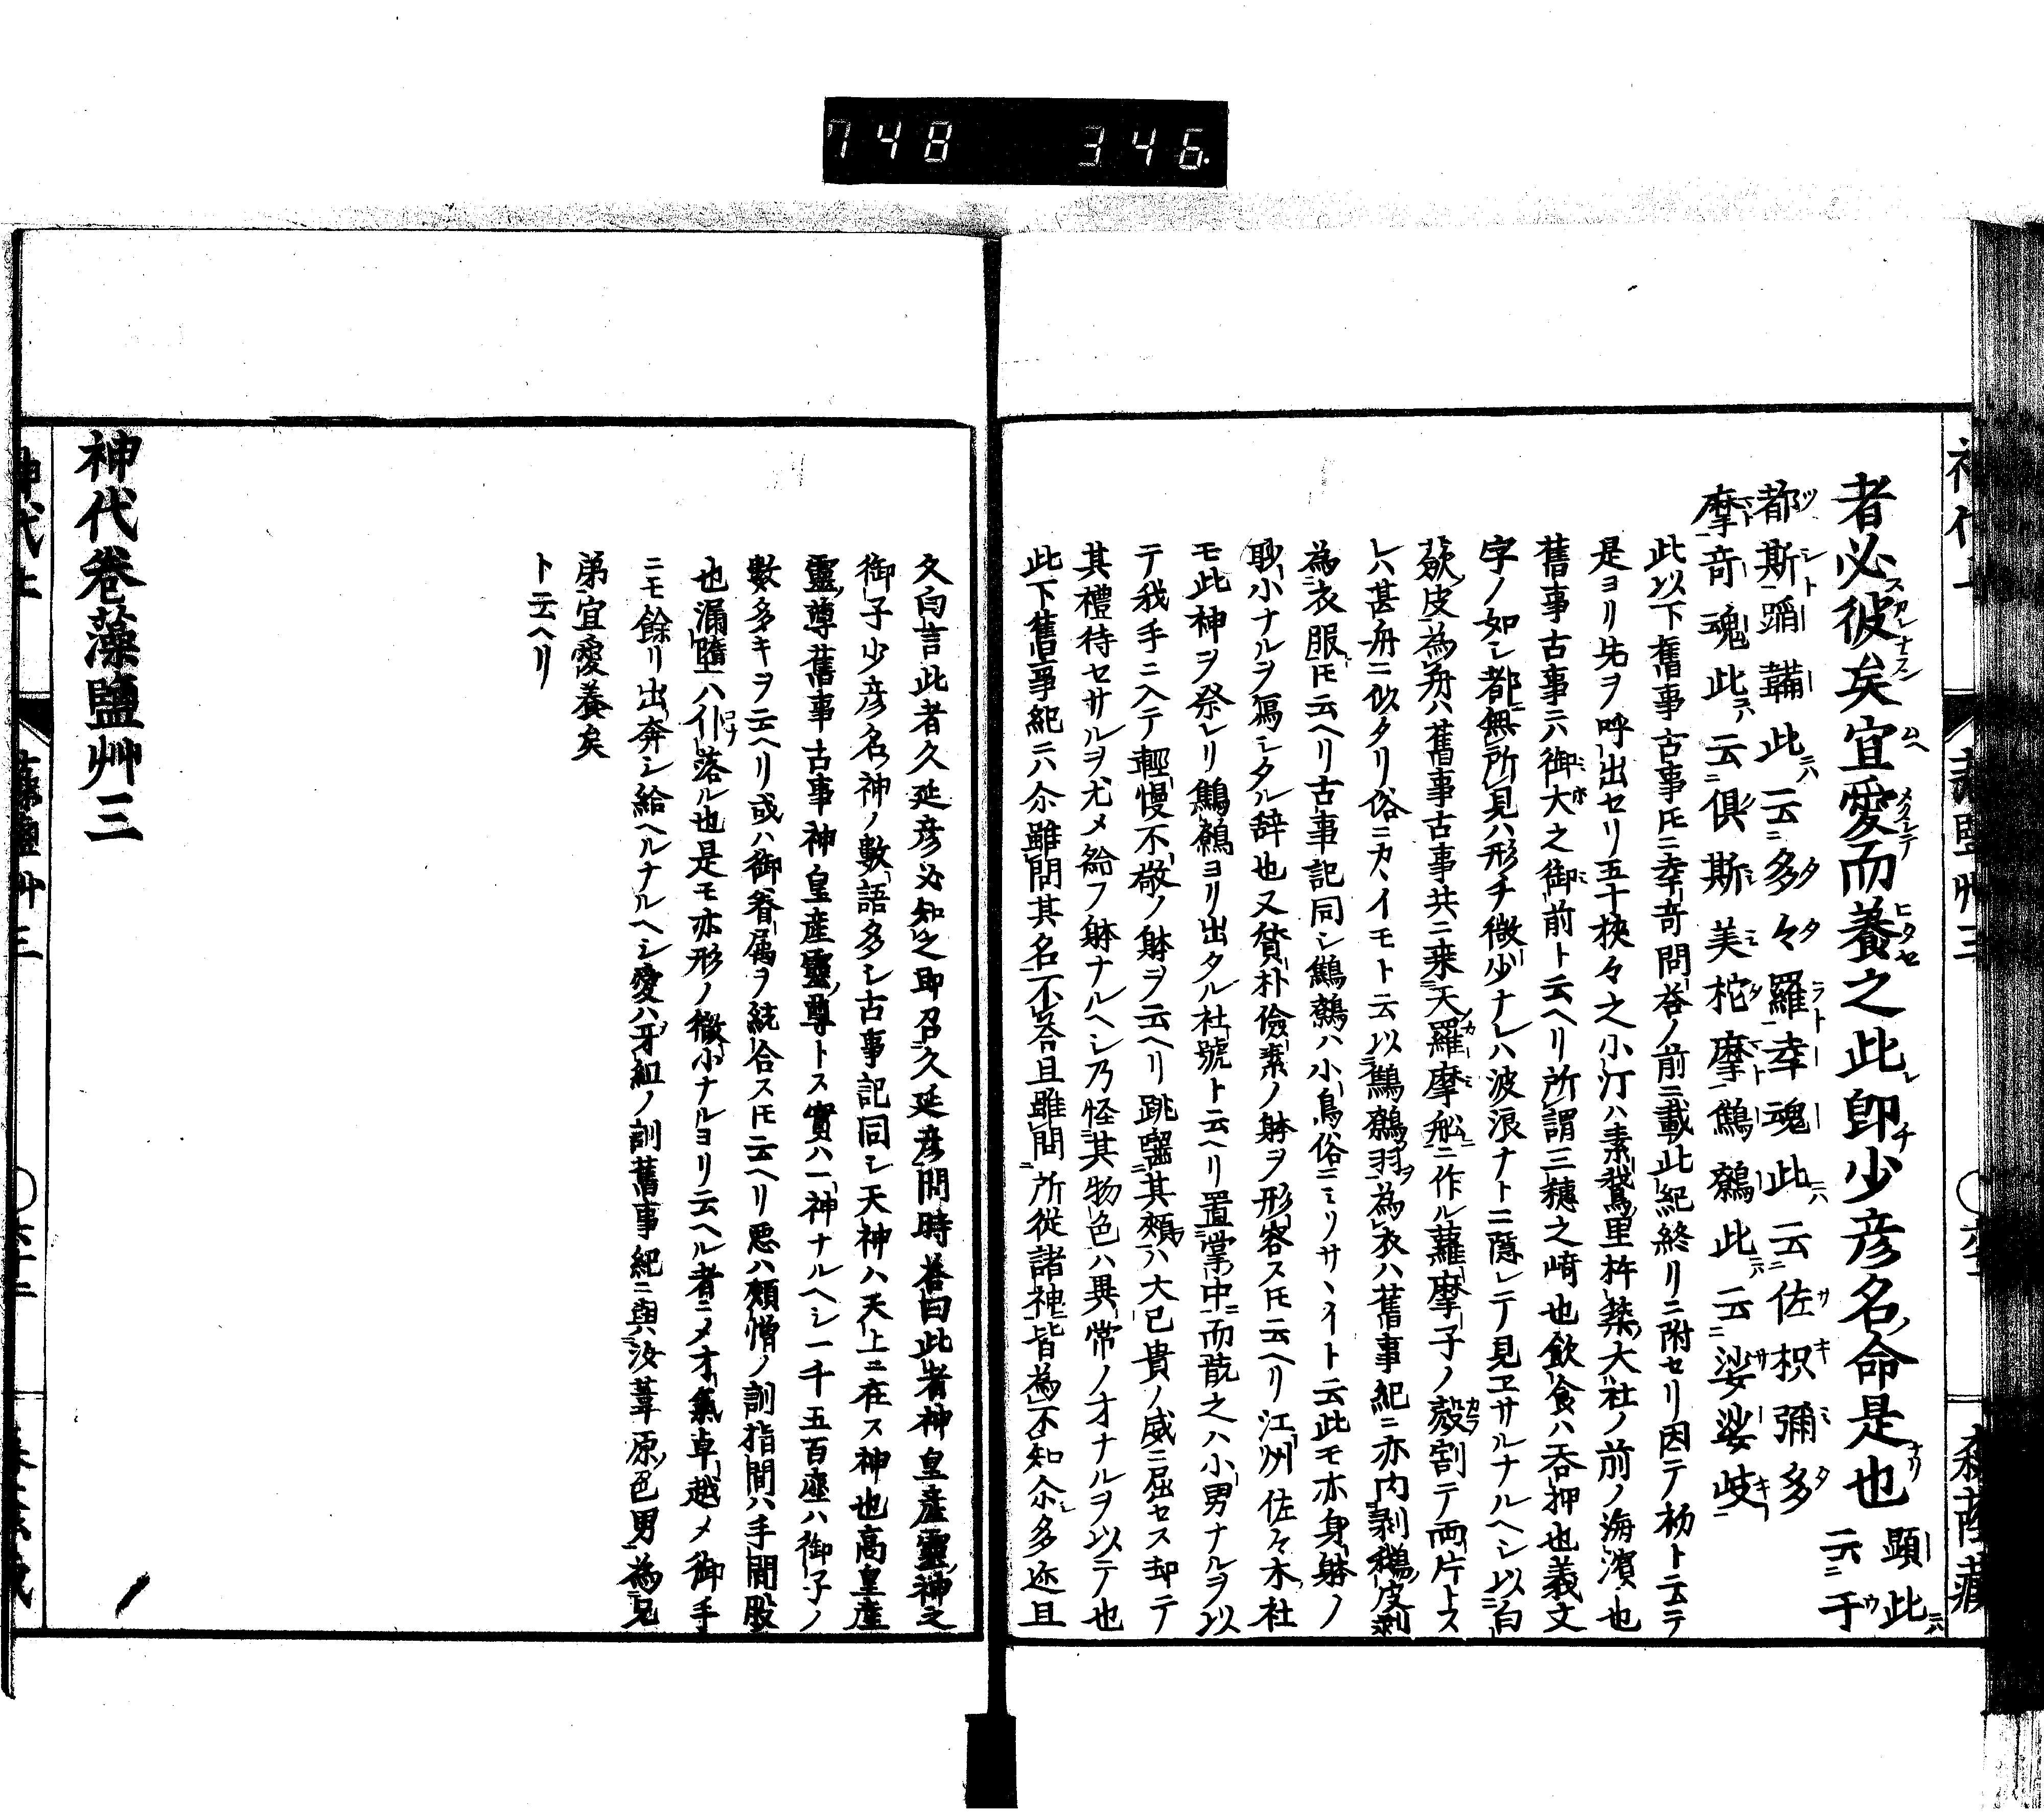 748 346
者必彼矣宜愛而養之此卽少彦名命是也 顕此云于
都斯蹈鞴此云多々羅幸魂此云佐枳彌多
摩奇魂此云倶斯美柁摩鷦鷯此云娑娑岐
此以下舊事古事圧ニ幸奇問荅ノ前ニ載此紀終リニ附セリ因テ初ト云テ
是ヨリ先ヲ呼出セリ五十挾々之小汀ハ素鵞里杵築大社ノ前ノ海濱也
舊事古事ニハ御大之御前ト云ヘリ所謂三穂之﨑也飲食ハ呑押也義文
字ノ如シ都無所見ハ形チ微少ナレハ波浪ナトニ隱レテ見ヱサルナルヘシ以白
蘞皮為舟ハ舊事古事共ニ乗天羅摩舩ニ作ル蘿摩子ノ殼割テ兩片トス
レハ甚舟ニ似タリ俗ニカヽイモト云以鷦鷯羽為衣ハ舊事紀ニ亦内剥鵝皮剥
為衣服圧云ヘリ古事記同シ鷦鷯ハ小鳥俗ニミソサヽイト云此モ亦身躰ノ
眇小ナルヲ寫シタル辞也又貧朴儉素ノ躰ヲ形容ス圧云ヘリ江州佐々木社
モ此神ヲ祭レリ鷦鷯ヨリ出タル社號ト云ヘリ置掌中而翫之ハ小男ナルヲ以
テ我手ニ入テ輕慢不敬ノ躰ヲ云ヘリ跳齧其頰ハ大己貴ノ威ニ屈セス却テ
其禮待セサルヲ尤メ給フ躰ナルヘシ乃怪其物色ハ異常ノオナルヲ以テ也
此下舊事紀ニハ尒雖問其名不荅且雖問所從諸神皆為不知尒多迩且
久白言此者久延彦必知之即召久延彦問時荅曰此者神皇産靈神之
御子少彦名神ノ數語多シ古事記同シ天神ハ天上ニ在ス神也高皇産
靈尊舊事古事神皇産靈尊トス實ハ一神ナルヘシ一千五百座ハ御子ノ
數多キヲ云ヘリ或ハ御眷属ヲ統合ス圧云ヘリ悪ハ頰憎ノ訓指間ハ手間股
也漏墮ハ仆落ル也是モ亦形ノ微小ナルヨリ云ヘル者ニメオ氣卓越メ御手
ニモ餘リ出奔シ給ヘルナルヘシ愛ハ牙組ノ訓舊事紀ニ與汝葦原色男為兄
弟宜愛養矣
ト云ヘリ
神代巻藻鹽艸三